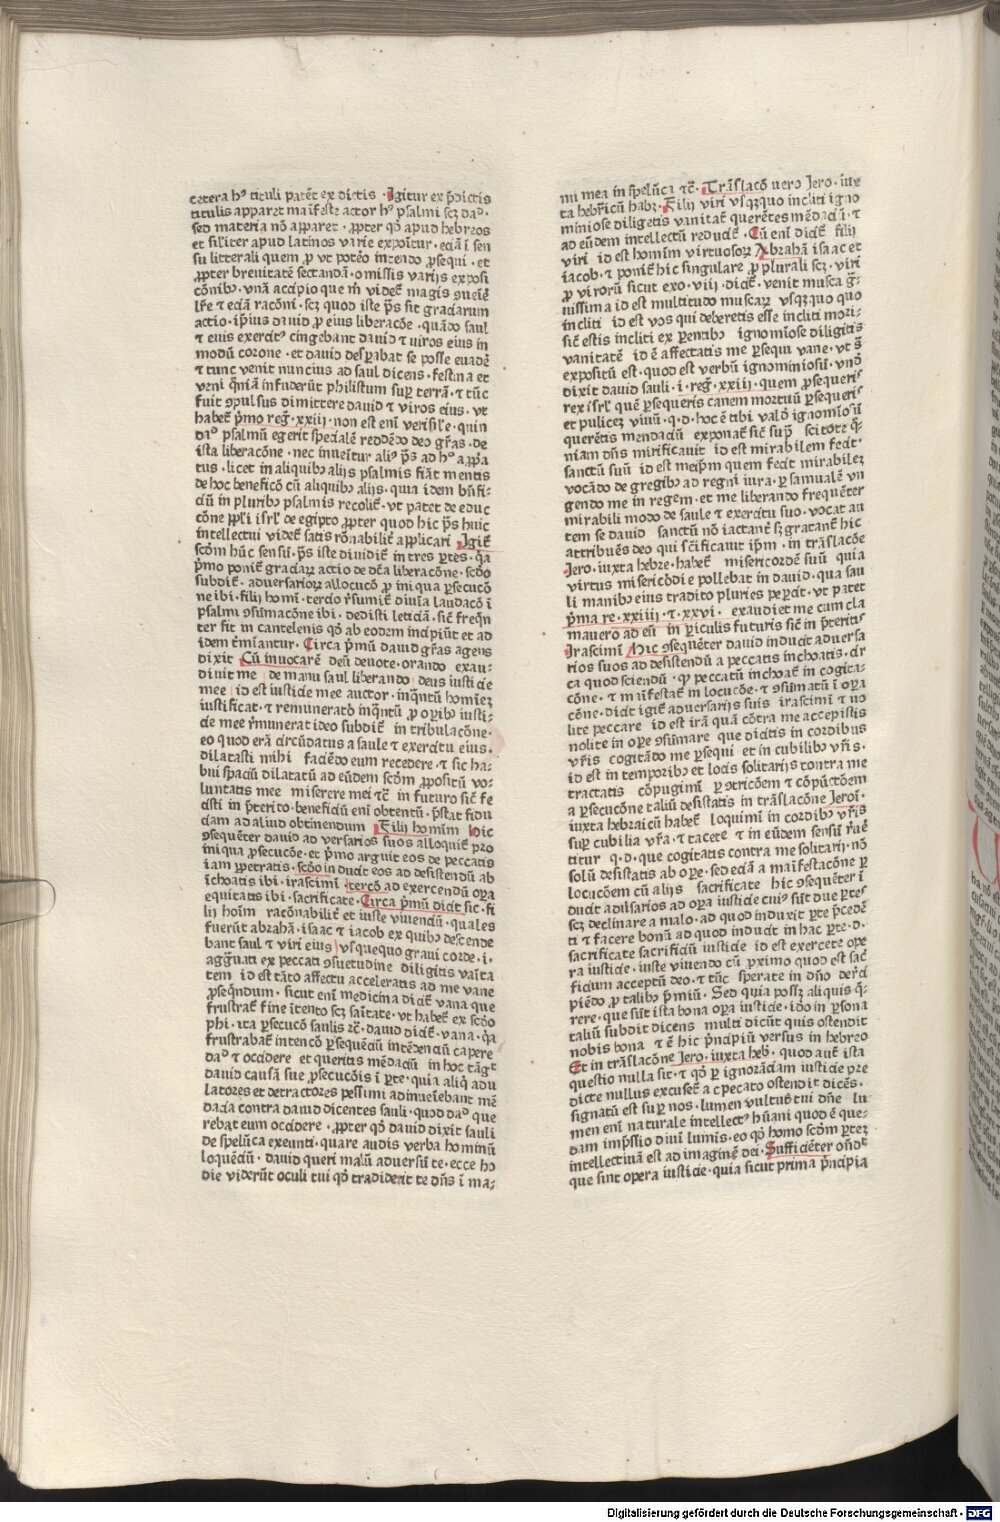 cetera hꝰ tituli patēt ex dictis · Igitur ex p̄dictis
titulis apparet maīfeste actor hꝰ psalmi scꝫ dað ·
sed materia nō apparet · ꝓpter qð apud hebreos
et sil'iter apud latinos varie exponit̄ur · eciā ī sen
su litterali quem ꝓ vt potero intendo ꝓsequi · et
ꝓpter breuitatē sectandā · omissis varijs exposi
cōnibꝰ · vnā accipio que m̄ videt̄ magis ꝯueīes
lr̄e ⁊ eciā racōni · scꝫ quod iste p̄s fit graciarum
actio · ip̄ius dauid ꝓ eius liberacōe · quādo saul
⁊ eius exercitꝰ cingebant dauid ⁊ viros eius in
modū corone · et dauid desꝑabat se posse euadeꝛ̄
⁊ tunc venit nuncius ad saul dicens · festina et
veni qm̄iā infuderūt philistum suꝑ terrā · ⁊ tūc
fuit ꝯpulsus dimittere dauid ⁊ viros eius · vt
habet̄ p̄mo reg̃ · xxiij · non est enī verisil'e · quin
dað psalmū egerit specialē reddēdo deo gr̄as · de
ista liberacōne · nec inueītur aliꝰ p̄s ad hꝰ a ꝓp̄a
tus · licet in aliquibꝰ alijs psalmis fiāt mentis
de hoc beneficō cū aliquibꝰ alijs · quia idem bn̄fi-
ciū in pluribꝰ psalmis recolit̄ · vt patet de educ
cōne pp̄l'i isr̄l' de egipto ꝓpter quod hic p̄s huic
intellectui videt̄ satis rōnabilit̄ applicari · Igit̄
scdm hūc sensū · p̄s iste diuidit̄ in tres ꝑtes · q̄a
p̄mo ponit̄ graciaꝝ actio de dc̄a liberacōne · scdo
subdit̄ · aduersarioꝝ allocucō ꝓ iniqua ꝑsecucō
ne ibi · filij homī · tercio r̄sumit̄ diuīa laudacō ī
psalmi ꝯsūmacōne ibi · dedisti leticiā · sic̄ freqn̄
ter fit in cantelenis qð ab eodem incipiūt et ad
idem t̄miantur · Circa p̄mū dauid gr̄as agens
dixit Cū inuocarē deū deuote · orando exau-
diuit me de manu saul liberando deus iusticie
mee id est iusticie mee auctor · inq̄ntū homiēꝫ
iustificat · ⁊ remuneratoꝛ inq̄ntū ꝓ oꝑibꝰ iusti-
cie mee r̄munerat ideo subdit̄ in tribulacōne ·
eo quod erā circūdatus a saule ⁊ exercitu eius ·
dilatasti mihi faciēdo eum recedere · ⁊ sic ha-
bui spaciū dilatatū ad eūdem scdm ꝓpositū vo-
luntatis mee miserere mei ⁊c̄ in futuro sic̄ fe
cisti in p̄terito · beneficiū enī obtentū · p̄stat fidu
ciam ad aliud obtinendum Filij hominū hic
ꝯsequēter dauid ad versarios suos alloquit̄ pro
iniqua ꝓsecucōe · et p̄mo arguit eos de peccatis
iam ꝑpetratis · scdo inducit eos ad desistendū ab
īchoatis ibi · irascimī · tercō ad exercendū oꝑa
equitatis ibi · sacrificate · Circa p̄mū dicit sic · fi
lij hoīm racōnabilit̄ et iuste viuendū · quales
fuerūt abrahā · isaac ⁊ iacob ex quibꝰ descende
bant saul ⁊ viri eius vsquequo graui corde · i ·
agg̃uati ex peccati ꝯsuetudine diligitis vaīta
tem id est tāto affectu acceleratis ad me vane
ꝓseqndum · sicut enī medicina dicit̄ vana que
frustrat̄ fine ītento scꝫ saītate · vt habet̄ ex scdo
phi · ita ꝑsecucō saulis ⁊c̄ · dauid dicit̄ · vana · q̄a
frustrabat̄ intencō ꝑsequēciū intēdenciū capere
dað ⁊ occidere et queritis mēdaciū in hoc tāgt̄
dauid causā sue ꝓsecucōis ī ꝑte · quia aliq̄ adu
latores et detractores pessimi adinueīebant mē
dacia contra dauid dicentes sauli · quod dað que
rebat eum occidere · ꝓpter qð dauid dixit sauli
de spelūca exeunti · quare audis verba hominū
loquēciū · dauid queri malū aduersū te · ecce ho
die viderūt oculi tui qð tradiderit te dn̄s ī ma-
nu mea in spelūca ⁊c̄ · Trāslacō vero Jero · iux
ta hebr̄icū habꝫ · Filij viri vsqꝫquo incliti igno
miniose diligetis vanitat̄ querētes mēdaciū · ⁊
ad eūdem intellectū reducit̄ · Cū enī dicit̄ filij
viri id est homīm virtuosoꝝ Abrahā isaac et
iacob · ⁊ ponit̄ hic singulare ꝓ plurali scꝫ · viri
ꝓ virorū sicut exo · viij · dicit̄ · venit musca g̃-
uissima id est multitudo muscaꝝ vsqꝫquo quo
incliti id est vos qui deberetis esse incliti mori-
sic̄ estis incliti ex ꝑentibꝰ ignomīose diligitis
vanitatē id ē affectatis me ꝑsequi vane · vt s̄
expositū est · quod est verbū ignominiosū · vnð
dixit dauid sauli · i · reg̃ · xxiij · quem ꝓsequeris
rex isr̄l' quē ꝑsequeris canem mortuū ꝑsequeri-
et pulicez viuū · q · d · hoc ē tibi valð ignomīosū
queretis mendaciū exponat̄ sic̄ sup̄ scitote q̄-
niam dn̄s mirificauit id est mirabilem fecit ·
sanctū suū id est meip̄m quem fecit mirabileꝫ
vocādo de gregibꝰ ad regni iura · ꝑ samuelē vn
gendo me in regem · et me liberando frequēter
mirabili modo de saule ⁊ exercitu suo · vocat au
tem se dauid sanctū nō iactant̄ sꝫ gratant̄ hic
attribuēs deo qui sc̄ificauit ip̄m · in trāslacōe
Jero · iuxta hebre · habet̄ misericordē suū quia
virtus misericōdie pollebat in dauid · qua sau
li manibꝰ eius tradito pluries peꝑcit · vt patet
p̄ma re · xxiiij · ⁊ · xxvi · exaudiet me cum cla
mauero ad eū in ꝑiculis futuris sic̄ in p̄teritis
Irascimī Hic ꝯsequēter dauid inducit aduersa
rios suos ad desistendū a peccatis inchoatis · cir
ca quod sciendū · qꝫ peccatū inchoat̄ in cogita-
cōne · ⁊ maīfestat̄ in locucōe · ⁊ ꝯsūmatū ī oꝑa
cōne · dicit igit̄ aduersarijs suis irascimī ⁊ no
lite peccare id est irā quā cōtra me accepistis
nolite in oꝑe ꝯsūmare que dicitis in cordibus
vr̄is cogitādo me ꝑsequi et in cubilibꝰ vr̄is ·
id est in temporibꝰ et locis solitarijs contra me
tractatis cōpugimī ꝑ ꝯtricōem ⁊ cōpūctōem
a ꝑsecucōne taliū desistatis in trāslacōne Jeroī ·
iuxta hebraicū habet̄ loquimī in cordibꝰ vr̄is
suꝑ cubilia vr̄a · ⁊ tacete ⁊ in eūdem sensū r̄uē
titur q · d · que cogitatis contra me solitarij · nō
solū desistatis ab oꝑe · sed eciā a maīfestacōne ꝑ
locucōem cū alijs sacrificate hic ꝯsequēter ī
ducit adūsarios ad oꝑa iusticie cuiꝰ sūt due ꝑtes
scꝫ declinare a malo · ad quod induxit ꝑte p̄cedē
ti ⁊ facere bonū ad quod inducit in hac ꝑte · d ·
sacrificate sacrificiū iusticie id est exercete ope
ra iusticie · iuste viuendo cū ꝓximo quod est sac̄
ficium acceptū deo · ⁊ tūc sperate in dn̄o der̄ci
piēdo ꝓ talibꝰ p̄miū · Sed quia possꝫ aliquis q̄-
rere · que sūt ista bona oꝑa iusticie · ido in ꝑsona
taliū subdit dicens multi dicūt quis ostendit
nobis bona ⁊ ē hic p̄ncipiū versus in hebreo
Et in trāslacōne Jero · iuxta heb̄ · quod aut̄ ista
questio nulla sit · ⁊ qð ꝑ ignorāciam iusticie pre
dicte nullus excuset̄ a cpecato ostendit dicēs ·
signatū est suꝑ nos · lumen vultus tui dn̄e lu
men enī naturale intellectꝰ hūani quod ē que-
dam imp̄ssio diuī lumis · eo qð homo scdm ꝑteꝫ
intellectiuā est ad imaginē dei · Sufficiēter ondt̄
que sint opera iusticie · quia sicut prima p̄ncipia
Digitalisierung gefördert durch die Deutsche Forschungsgemeinschaft - DFG